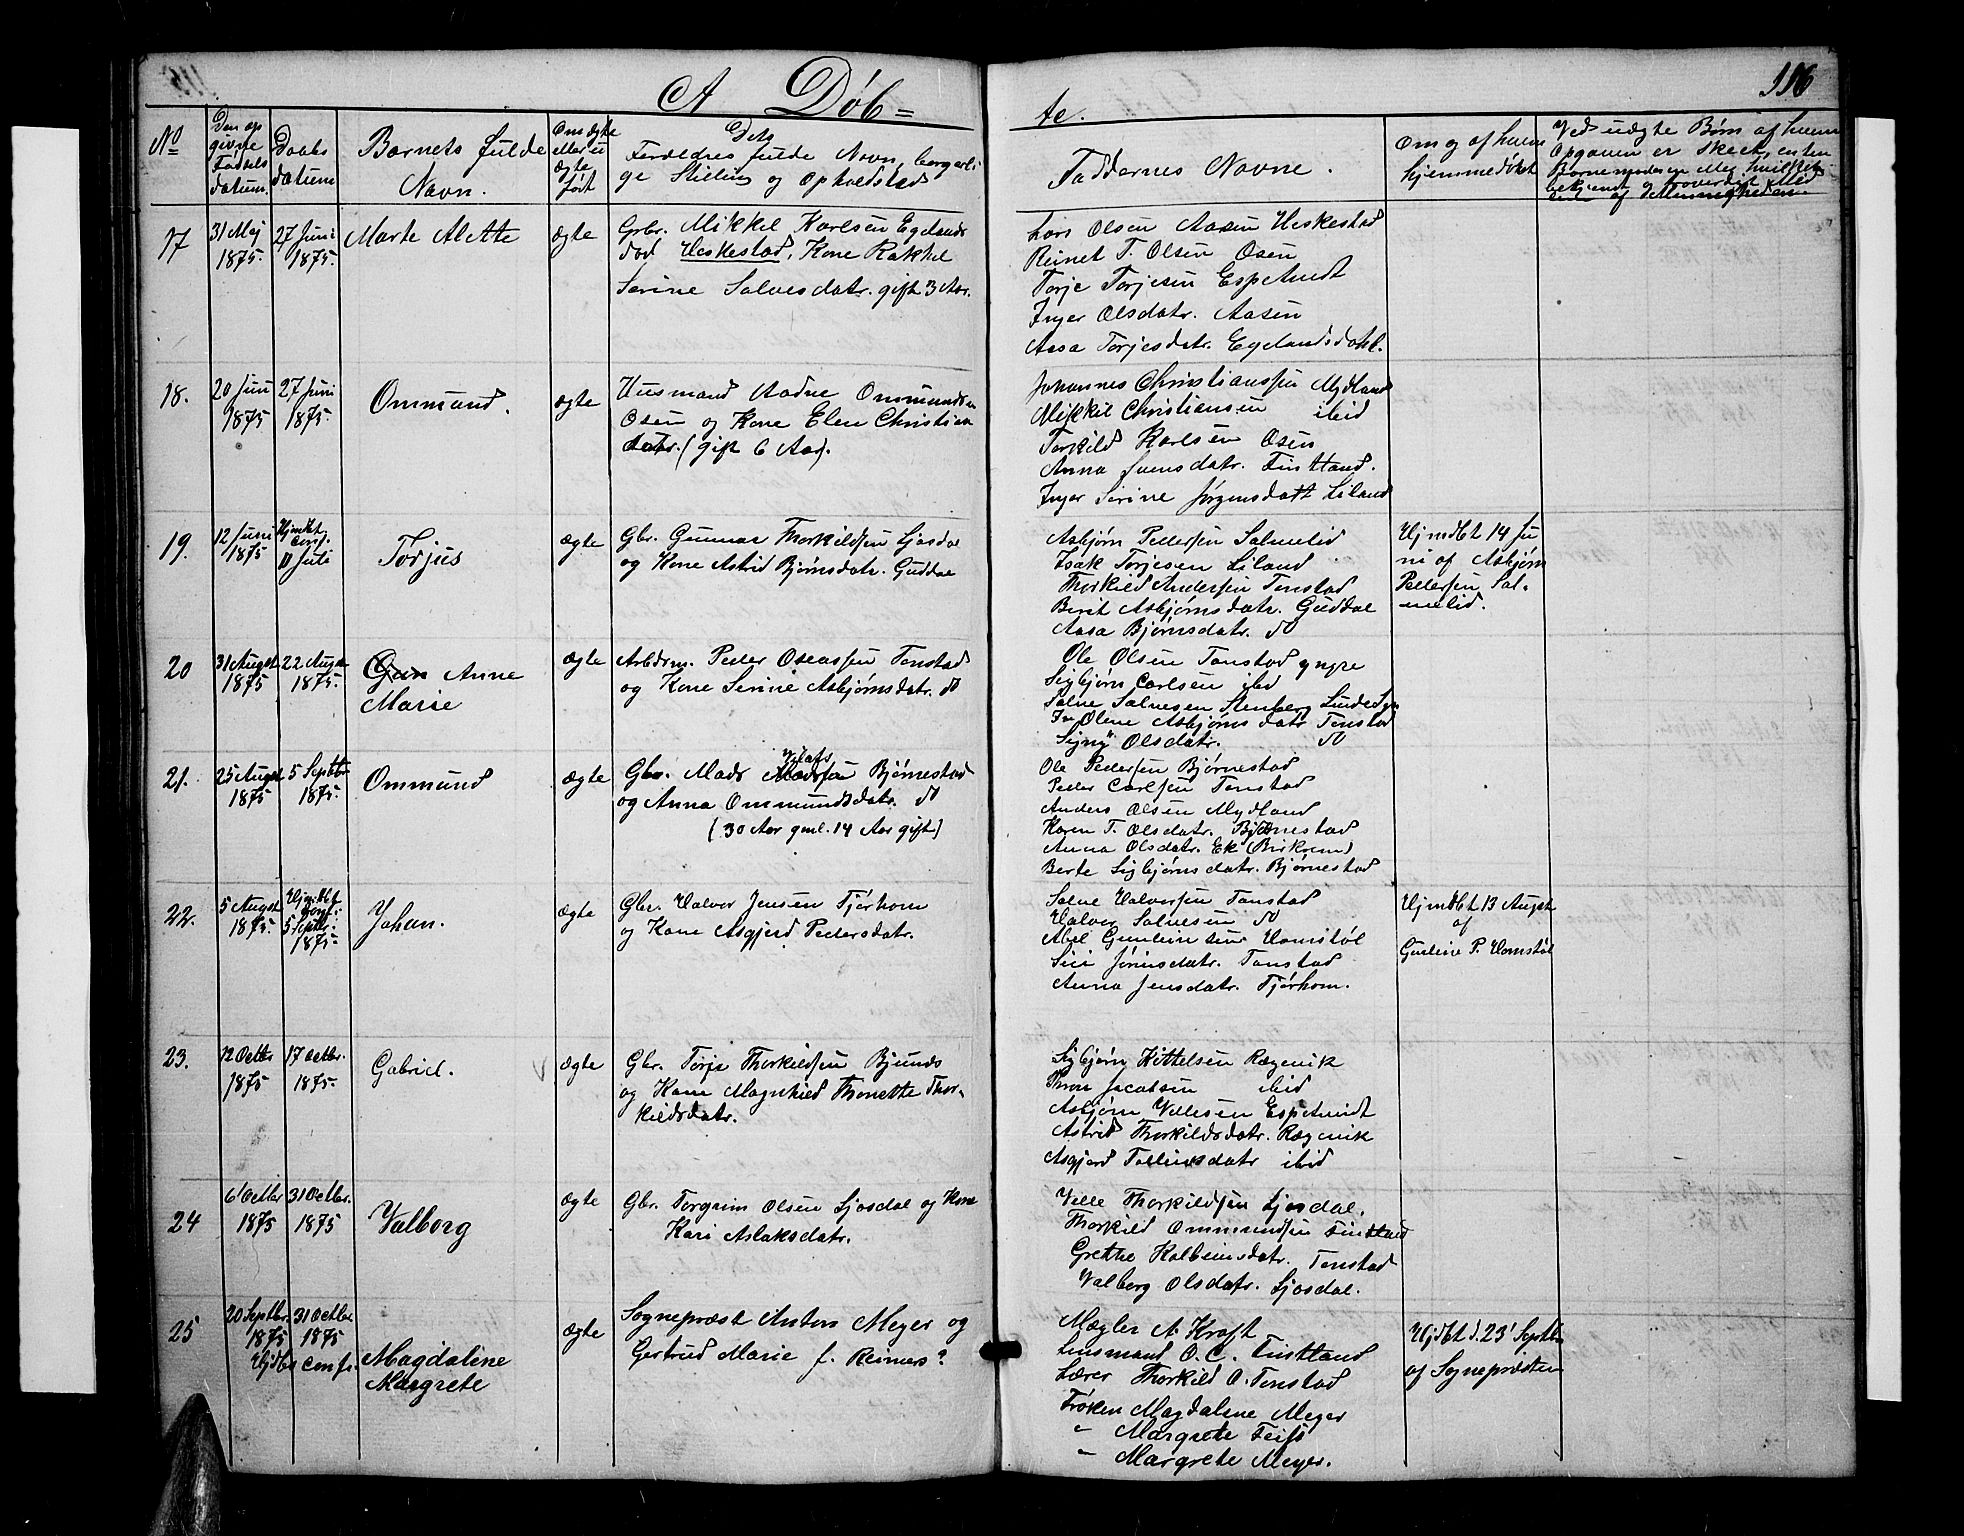 A Døb=
te.
116
No
Den op
givne
Fødsels
datum
Daabs
datum
Barnets fulde
Navn.
Om ægte
eller u
ægte
født
Dets
Forældres fulde Navn, borgerli
ge Stilling og Opholdsted
Faddernes Navne.
Om og af hvem
hjemmedøbt
Ved uægte Børn af hvem
Opgaven er skeet, enten
17
31 Mai
1875.
27 Juni
1875.
Marte Alette
ægte
Grbr. Mikkel Karlsen Egelands
dal Heskestad, Kone Rakkel
Serine Salvesdatr. gift 3 Aar.
Lars Olsen Aasen Heskestad
Reinet T. Olsen Osen
Torje Torjesen Espetvedt
Inger Olsdatr. Aasen
Aasa Torjesdatr. Egelandsdahl.
18.
20 Juni
1875
27 Juni
1875.
Ommund.
ægte
Husmand Aadne Ommundsen
Osen og Kone Elen Christian
datr. (gift 6 Aar).
Johannes Christianssen Mydland
Mikkil Christiansen ibid
Torkild Karlsen Osen
Anna Svensdatr. Fintland.
Inger Serine Jørgensdatt Liland
19.
12 Juni
1875
Hjmdbt
conf.
11 Juli
Torjus
ægte
Gbr. Gunnar Thorkildsen Ljosdal
og Kone Astrid Bjørnsdatr. Guddal
Asbjørn Pedersen Salmelid
Isak Torjesen Liland
Thorkild Andersen Tonstad
Berit Asbjørnsdatr. Guddal
Aasa Bjørnsdatr. do
Hjmdbt 14 Ju
ni af Asbjørn
Pedersen Sal-
melid.
20
31 August
1875
22 August
1875.
Gun Anne
Marie
ægte
Arbdsm. Peder Oseassen Tonstad
og Kone Serine Asbjørnsdatr. do
Ole Olsen Tonstad yngre
Sigbjørn Carlsen ibd
Salve Salvesen Stenberg
Olene Asbjørnsdatr Tonstad
Signy Olsdatr. do
21.
25 August
1875
5 Septbr
1875.
Ommund
ægte
Gbr. Mads Madssen Bjørnestad
og Anna Ommundsdatr. do
(30 Aar gml. 14 Aar gift)
Ole Pedersen Bjørnestad
Peder Carlsen Tonstad
Anders Olsen Mydland
Karen T. Olsdatr. Bjørnestad
Anna Olsdatr. Ek (Birkrem)
Berte Sigbjørnsdatr. Bjørnestad
22.
5 August
1875.
Hjmdbt
conf.
5 Septbr.
1875.
Johan.
ægte
Gbr. Halvor Jensen Tjørhom
og Kone Asgjerd Pedersdatr.
Salve Halvorsen Tonstad
Halvor Salvesen do
Abel Gunleinsen Homstøl
Siri Jørinsdatr. Tonstad
Anna Jensdatr. Tjørhom.
Hjmdbt 13 August
af
Gunleie P. Homstøl
23.
12 Octbr
1875
17 Octbr.
1875.
Gabriel.
ægte
Gbr. Torje Thorkildsen Bjunds
og Kone Magnhild Thonette Thor-
kildsdatr.
Sigbjørn Kittelsen Rægevik
Thron Jacobsen ibid
Asbjørn Vellesen Espetveidt
Astrid Thorkildsdatr. Rægevik
Asgjerd Tolleivsdatr ibid
24
6 Octbr
1875
31 Octbr.
1875
Valborg
ægte
Gbr. Torgrim Olsen Ljosdal og Kone
Kari Aslaksdatr.
Velle Thorkildsen Ljosdal.
Thorkild Ommundsen Fintland
Grethe Kolbeinsdatr. Tonstad
Valborg Olsdatr. Ljosdal.
25
20 Septbr.
1875
31 Octbr
1875
Hjdbt conf.
Magdalene
Margrete
ægte
Sognepræst Anton Meyer og
Gertrud Marie f. Reimers?
Mægler A Kraft
Lensmand O. C. Fintland
Lærer Thorkild O. Tonstad
Frøken Magdalene Meyer
" Margrete Feiss
" Margrete Meyer.
Hjdbt d. 23' Septbr
af Sognepræsten